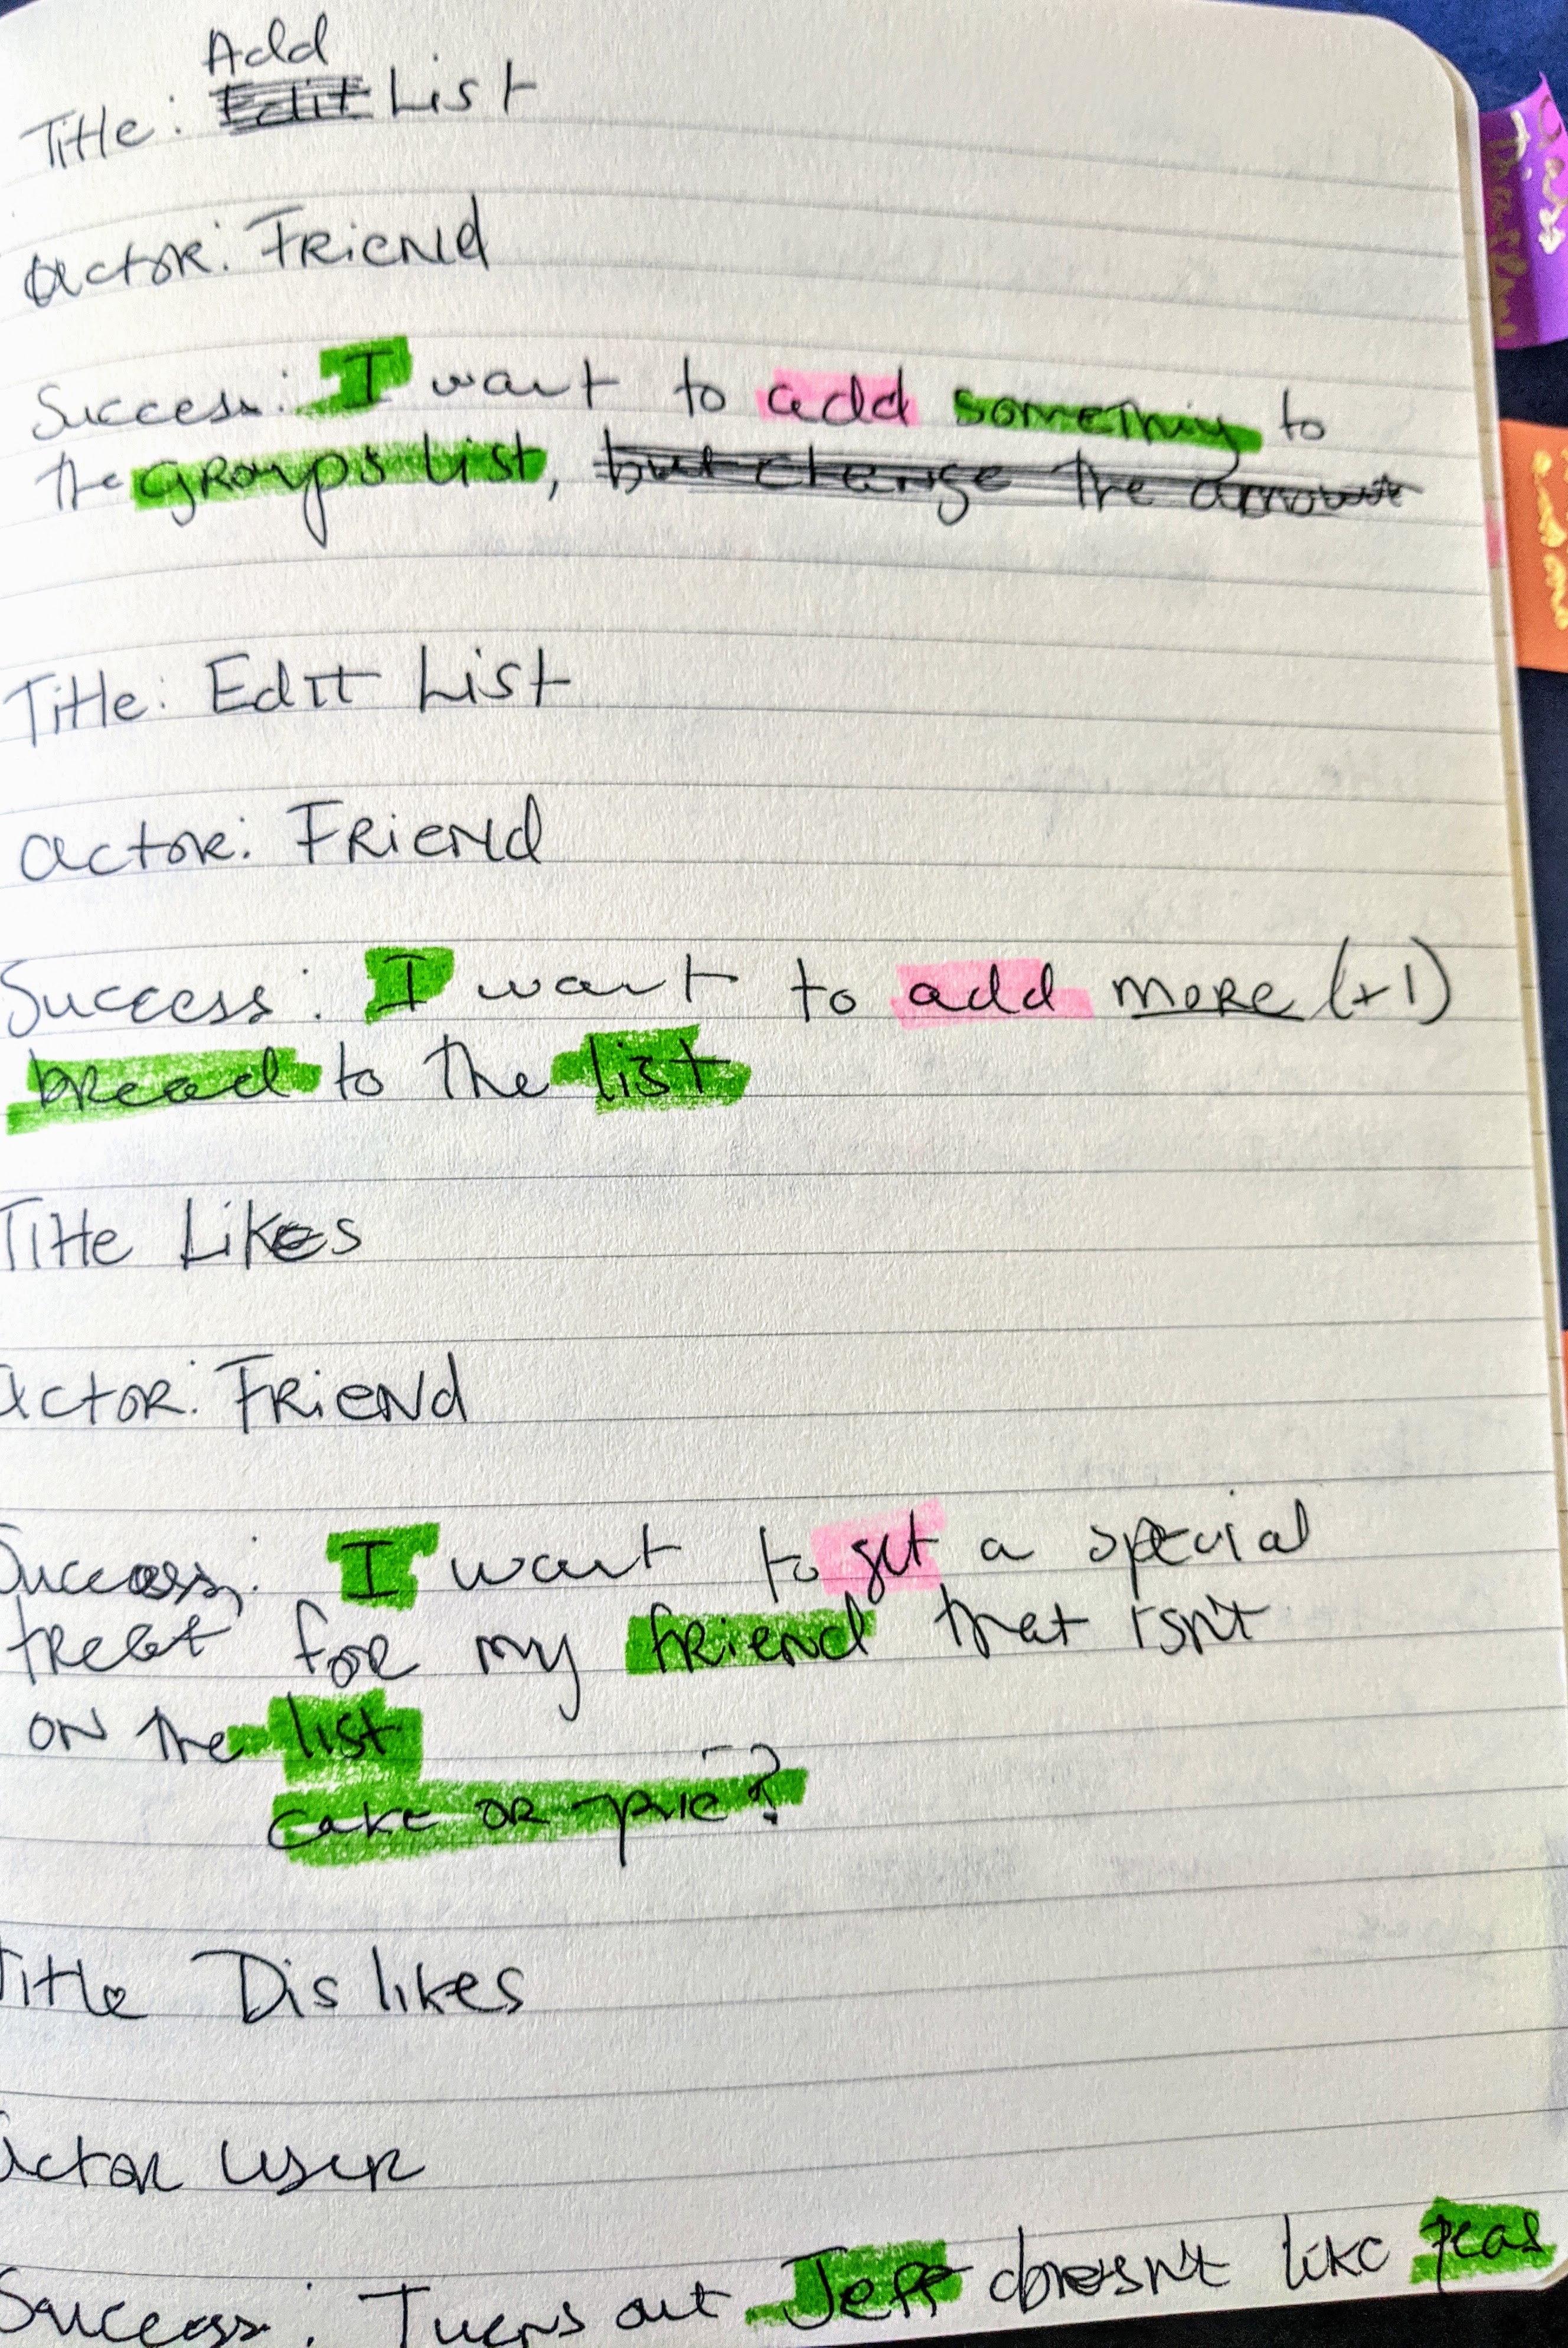 Add
Title: Edit List
Actor: Friend
Success: I want to add something to
the groups list, but change the amount
Title: Edit List
Actor: Friend
Success: I want to add more (+1)
bread to the list
Title Likes
Actor: Friend
Success: I want to get a special
treat for my friend that isn't
on the list
cake or pie?
Title Dislikes
Actor User
Success: Turns out Jeff doesn't like peas
Class